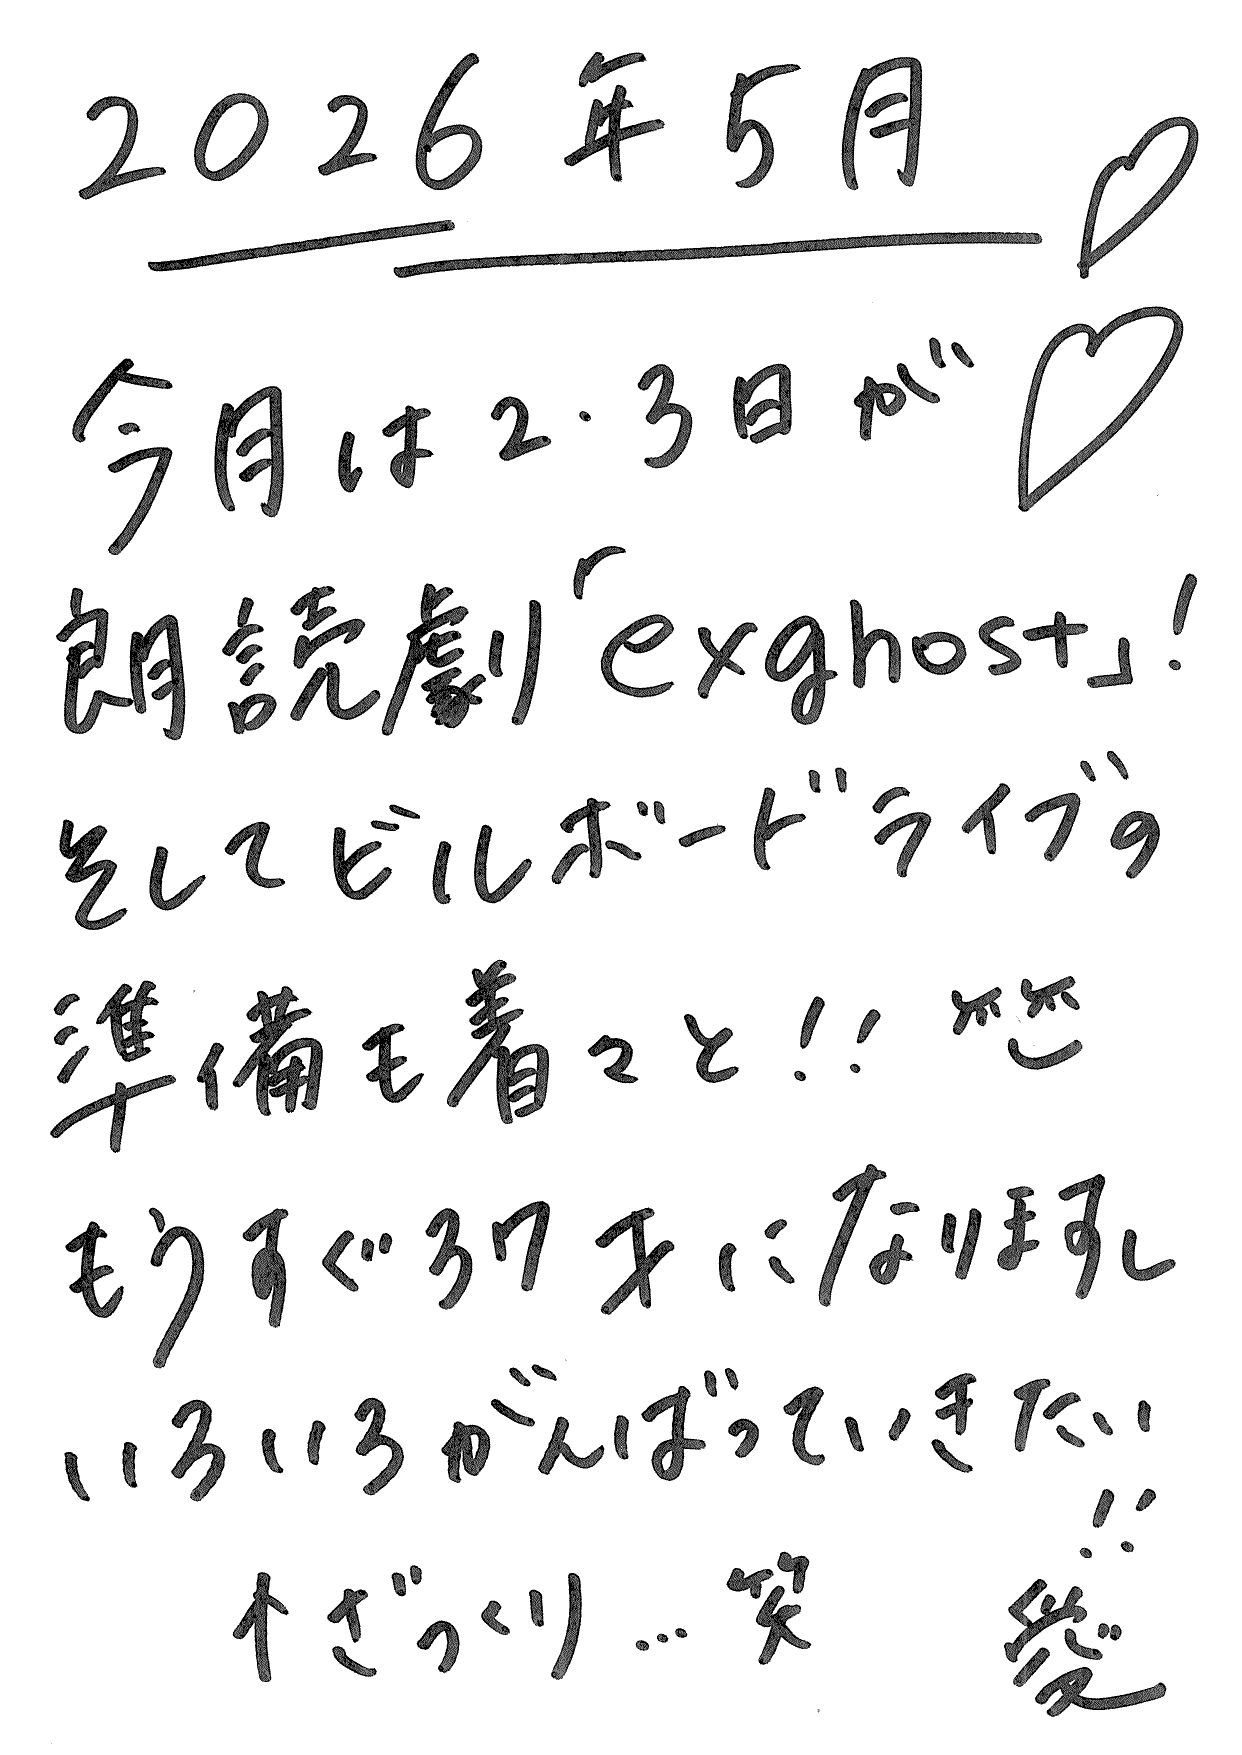 2026年5月♡
今月は2.3日が♡
朗読劇「exghost」!
そしてビルボードライブの
準備も着々と!!
もうすぐ37才になりますし
いろいろがんばっていきたい
!!
↑ざっくり…笑 愛